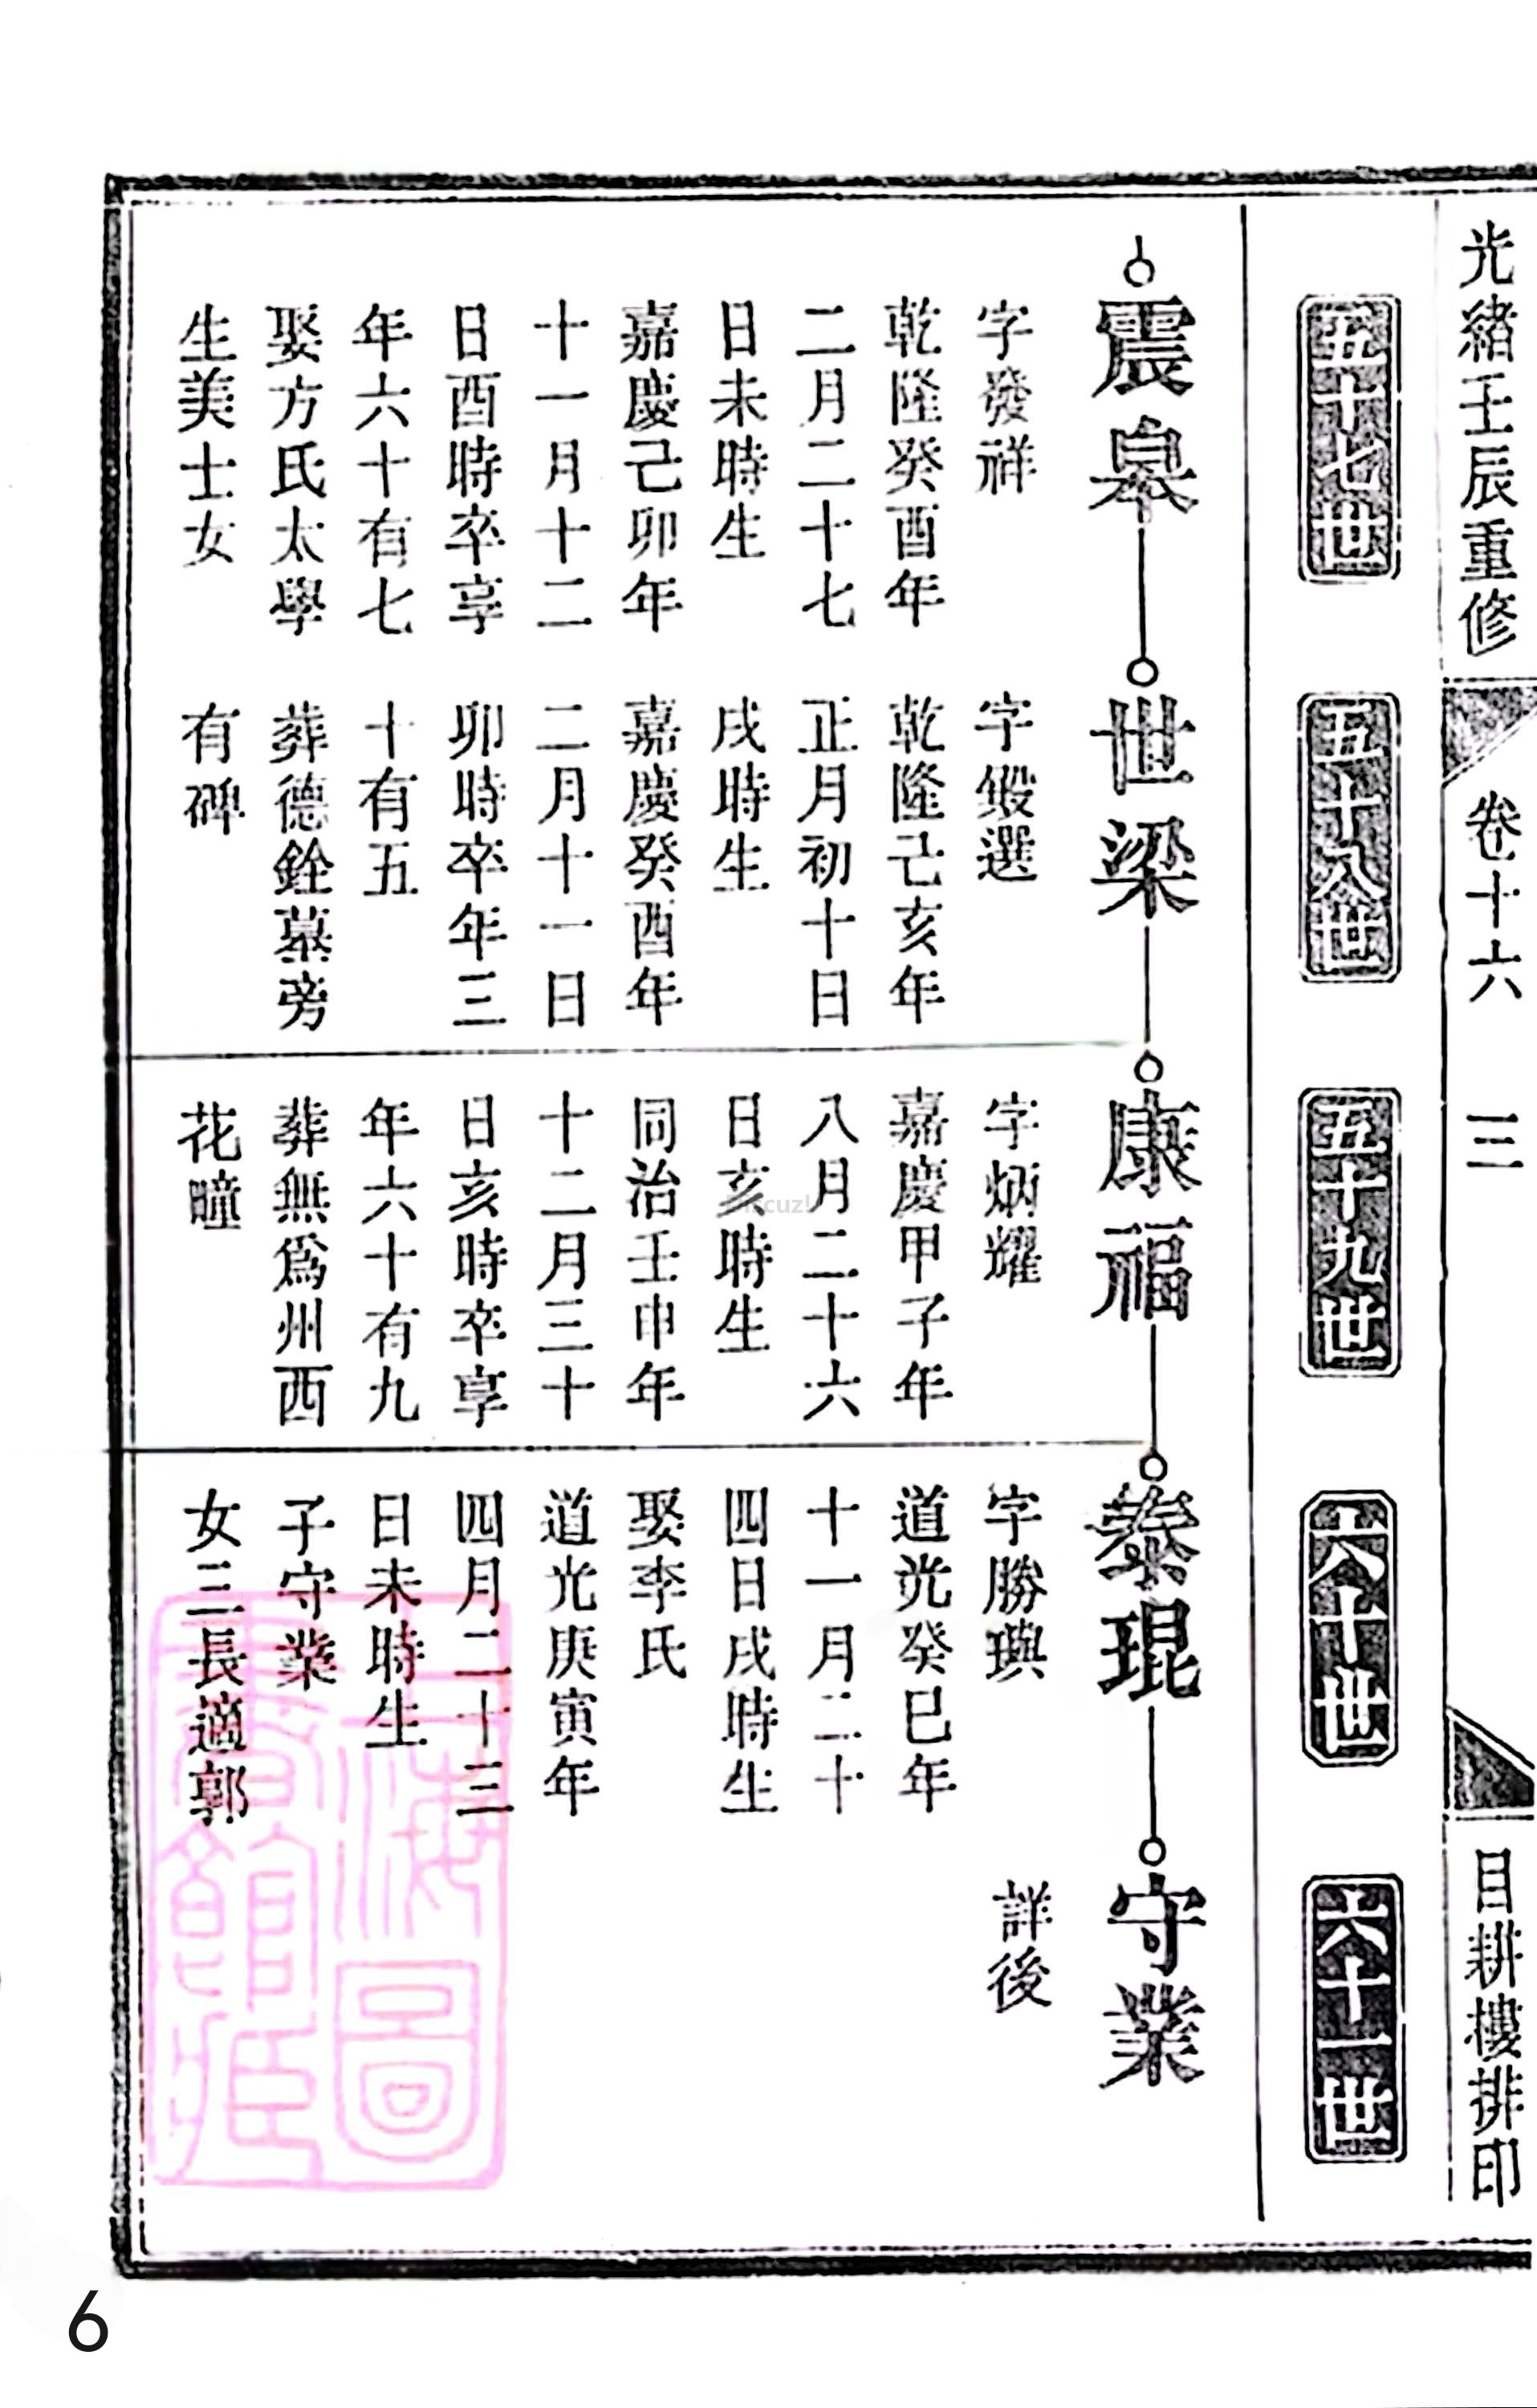 光緒壬辰重修
卷十六
三
目耕樓排印
五十七世
五十八世
五十九世
六十世
六十一世
震皋
字發祥
乾隆癸酉年
二月二十七
日未時生
嘉慶己卯年
十一月十二
日酉時卒享
年六十有七
娶方氏太學
生美士女
世梁
字鍛選
乾隆己亥年
正月初十日
戌時生
嘉慶癸酉年
二月十一日
卯時卒年三
十有五
葬德銓墓旁
有碑
康福
字炳耀
嘉慶甲子年
八月二十六
日亥時生
同治壬申年
十二月三十
日亥時卒享
年六十有九
葬無爲州西
花疃
泰琨
字勝璵
道光癸巳年
十一月二十
四日戌時生
娶李氏
道光庚寅年
四月二十三
日未時生
子守業
女三長適郭
守業
詳後
上海圖
書館藏
6